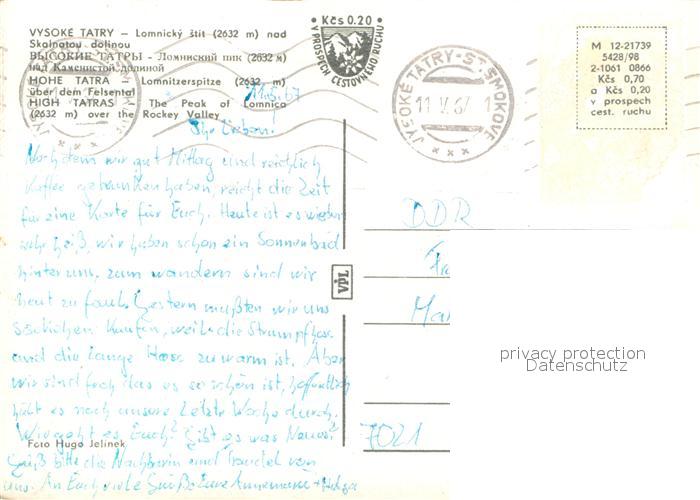 VYSOKÉ TATRY – Lomnický štít (2632 m) nad
Skalnatou dolinou
ВЫСОКИЕ ТАТРЫ - Ломницкий пик (2632 м)
над Каменистой долиной
HOHE TATRA – Lomnitzerspitze (2632 m)
über dem Felsental
HIGH TATRAS – The Peak of Lomnica
(2632 m) over the Rockey Valley
Kčs 0.20
V PROSPECH CESTOVNÉHO RUCHU
VYSOKÉ TATRY-ST. SMOKOVEC
11.V.67
M 12-21739
5428/98
2-1061 0866
Kčs 0,70
a Kčs 0,20
v prospech
cest. ruchu
11.5.67
Ihr Lieben!
Nachdem wir gut Mittag und reichlich
Kaffee getrunken haben, reicht die Zeit
für eine Karte für Euch. Heute ist es wieder
sehr heiß, wir haben schon ein Sonnenbad
hinter uns, zum wandern sind wir
heut zu faul. Gestern mußten wir uns
Söckchen kaufen, weil die Strumpfhose
und die lange Hose zu warm ist. Aber
wir sind froh das es so schön ist, hoffentlich
hält es noch unsere letzte Woche durch.
Wie geht es Euch? Gibt es was Neues?
Grüß bitte die Nachbarin und Traudel von
uns. An Euch viele Grüße Eure Annemarie + Helga
Foto Hugo Jelínek
VPL
DDR
Fr
Mar
7021
privacy protection
Datenschutz